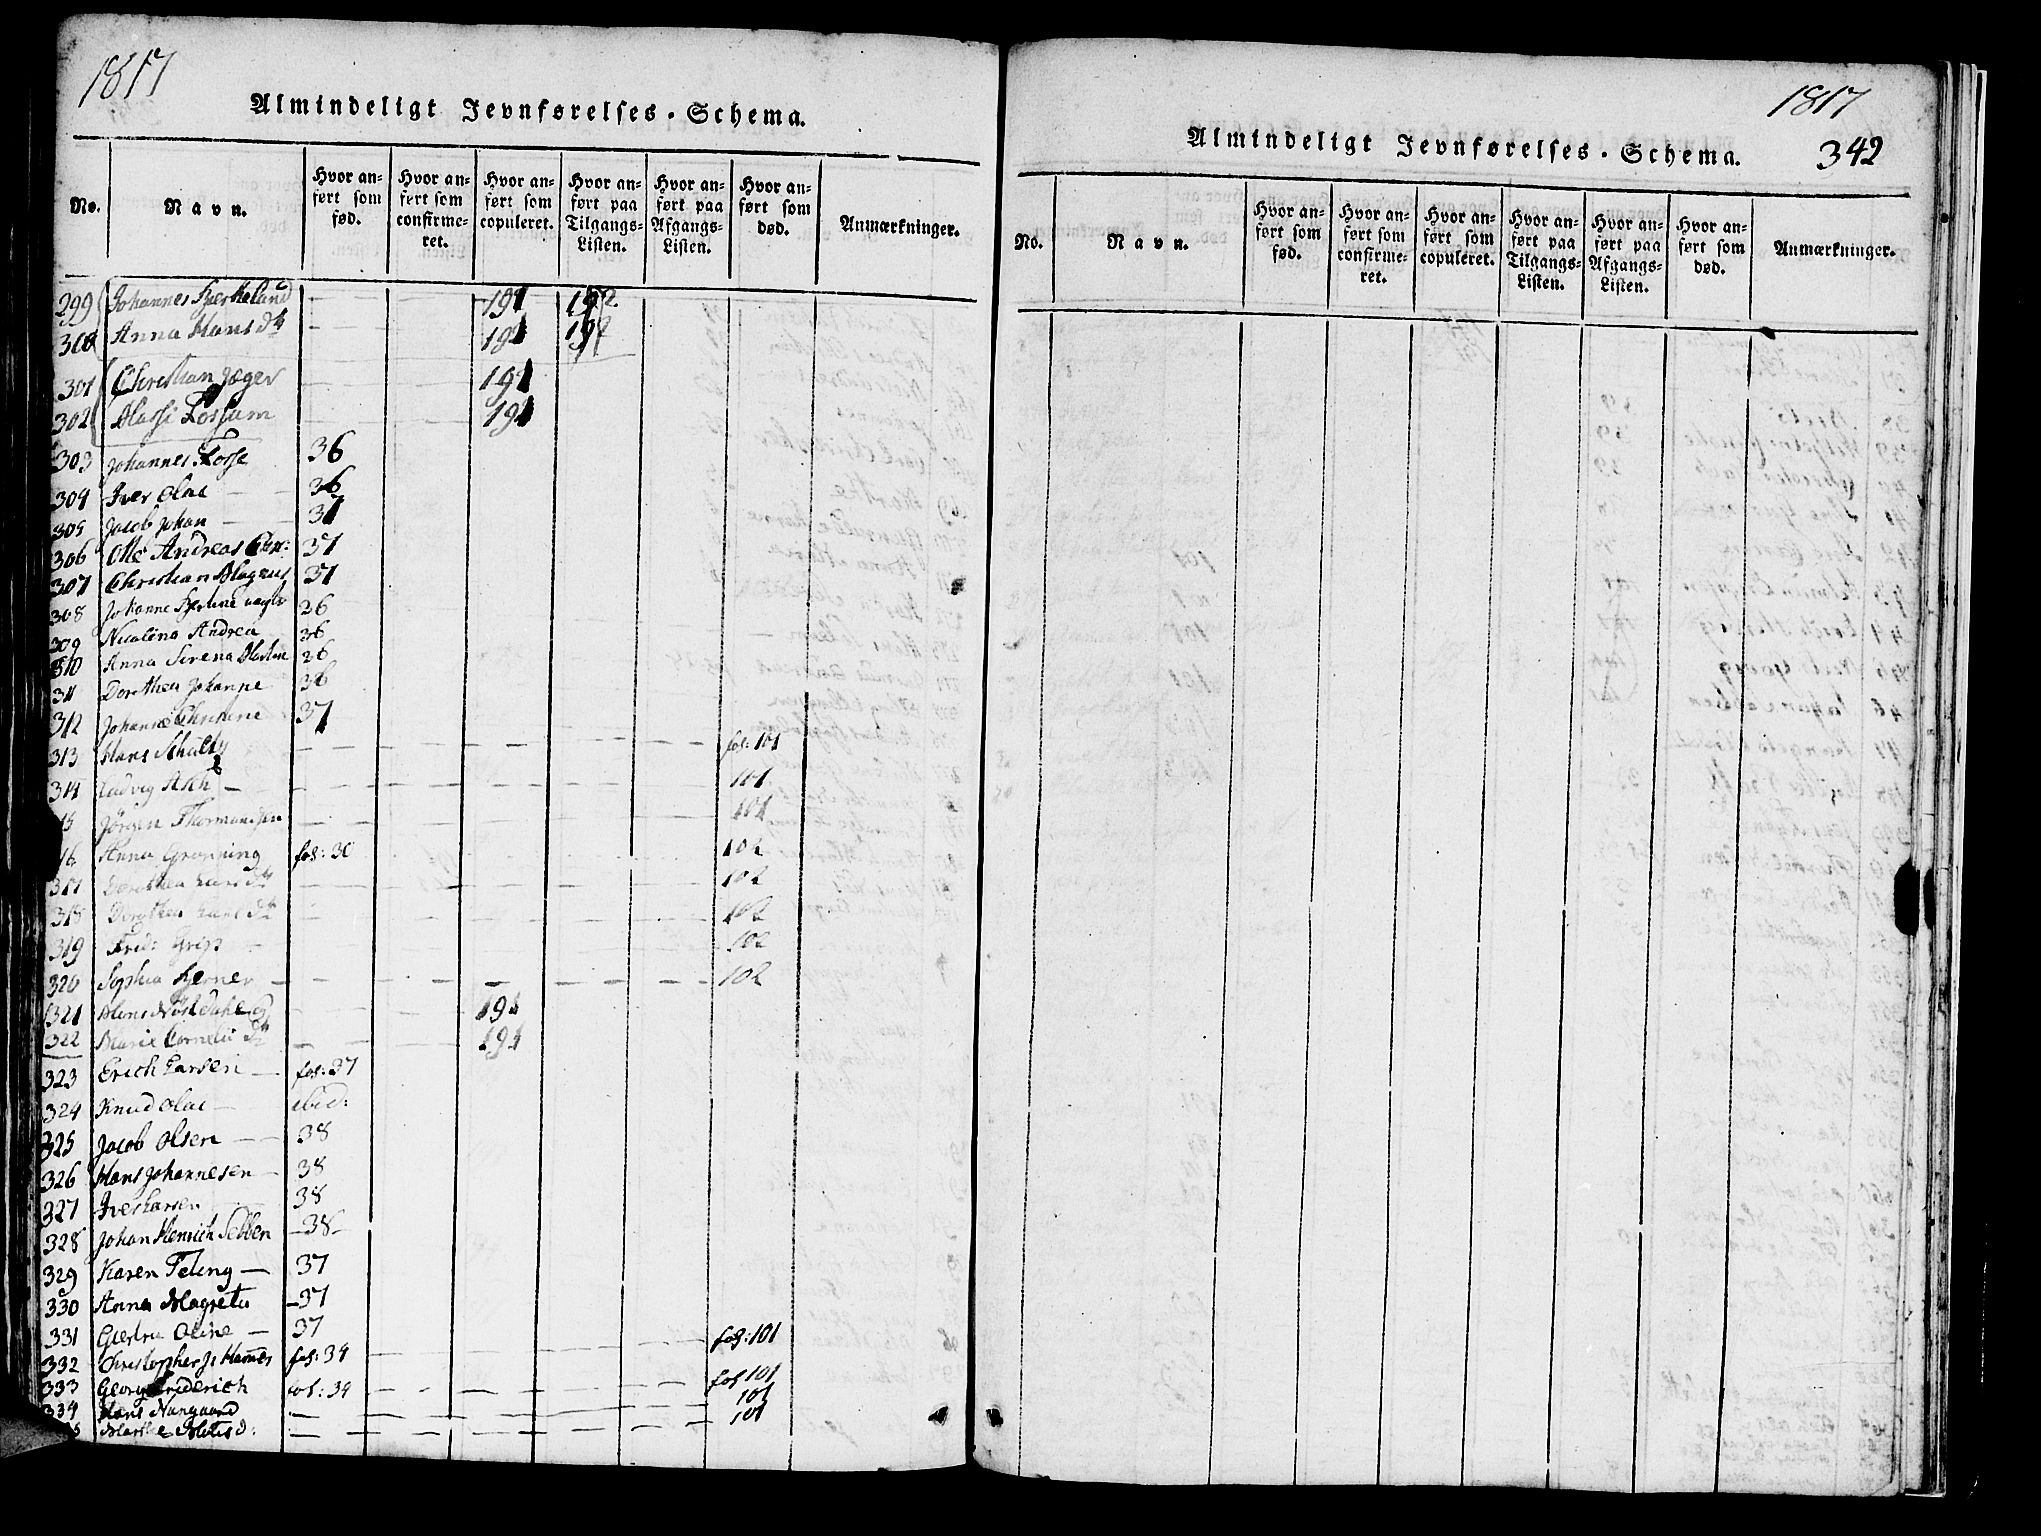 1817
Almindeligt Jevnførelses-Schema.
No.
Navn.
Hvor anført som fød.
Hvor anført som confirmeret.
Hvor anført som copuleret.
Hvor anført paa Tilgangs-Listen.
Hvor anført paa Afgangs-Listen.
Hvor anført som død.
Anmærkninger.
299 Johannes 191 192
300 Anna Hans dtr 191 192
301 Christian Jæger 191
302 Fossum 191
303 Johannes Fosse 36
304 Iver Olai 36
305 Jacob Johan 37
306 Ole Andreas 37
307 Christian Magnus 37
308 Johanne 36
309 Nicoline Andrea 36
310 Anna Serena 36
311 Dorthea Johanne 36
312 Johanne Christine 37
313 Hans Schultz fol: 101
314 Ludvig 101
15 Jörgen Thormundsen 101
16 Anna Grønning fol: 30 102
317 Dorothea Lars dtr 102
318 Dorothea dtr 102
319 Fred: Grip 102
320 Sophia 102
321 191
322 Marie Corneli dtr 191
323 Erich Larsen fol: 37
324 Knud Olai ibid:
325 Jacob Olsen 38
326 Hans Johannesen 38
327 Iver Larsen 38
328 Johan Henrich 38
329 Karen 37
330 Anna Magreta 37
331 Oline 37 fol: 101
332 Christopher fol: 34
333 Georg Friderich fol: 34 fol 101
334 Hans 101
101
1817
342
Almindeligt Jevnførelses-Schema.
No.
Navn.
Hvor anført som fød.
Hvor anført som confirmeret.
Hvor anført som copuleret.
Hvor anført paa Tilgangs-Listen.
Hvor anført paa Afgangs-Listen.
Hvor anført som død.
Anmærkninger.